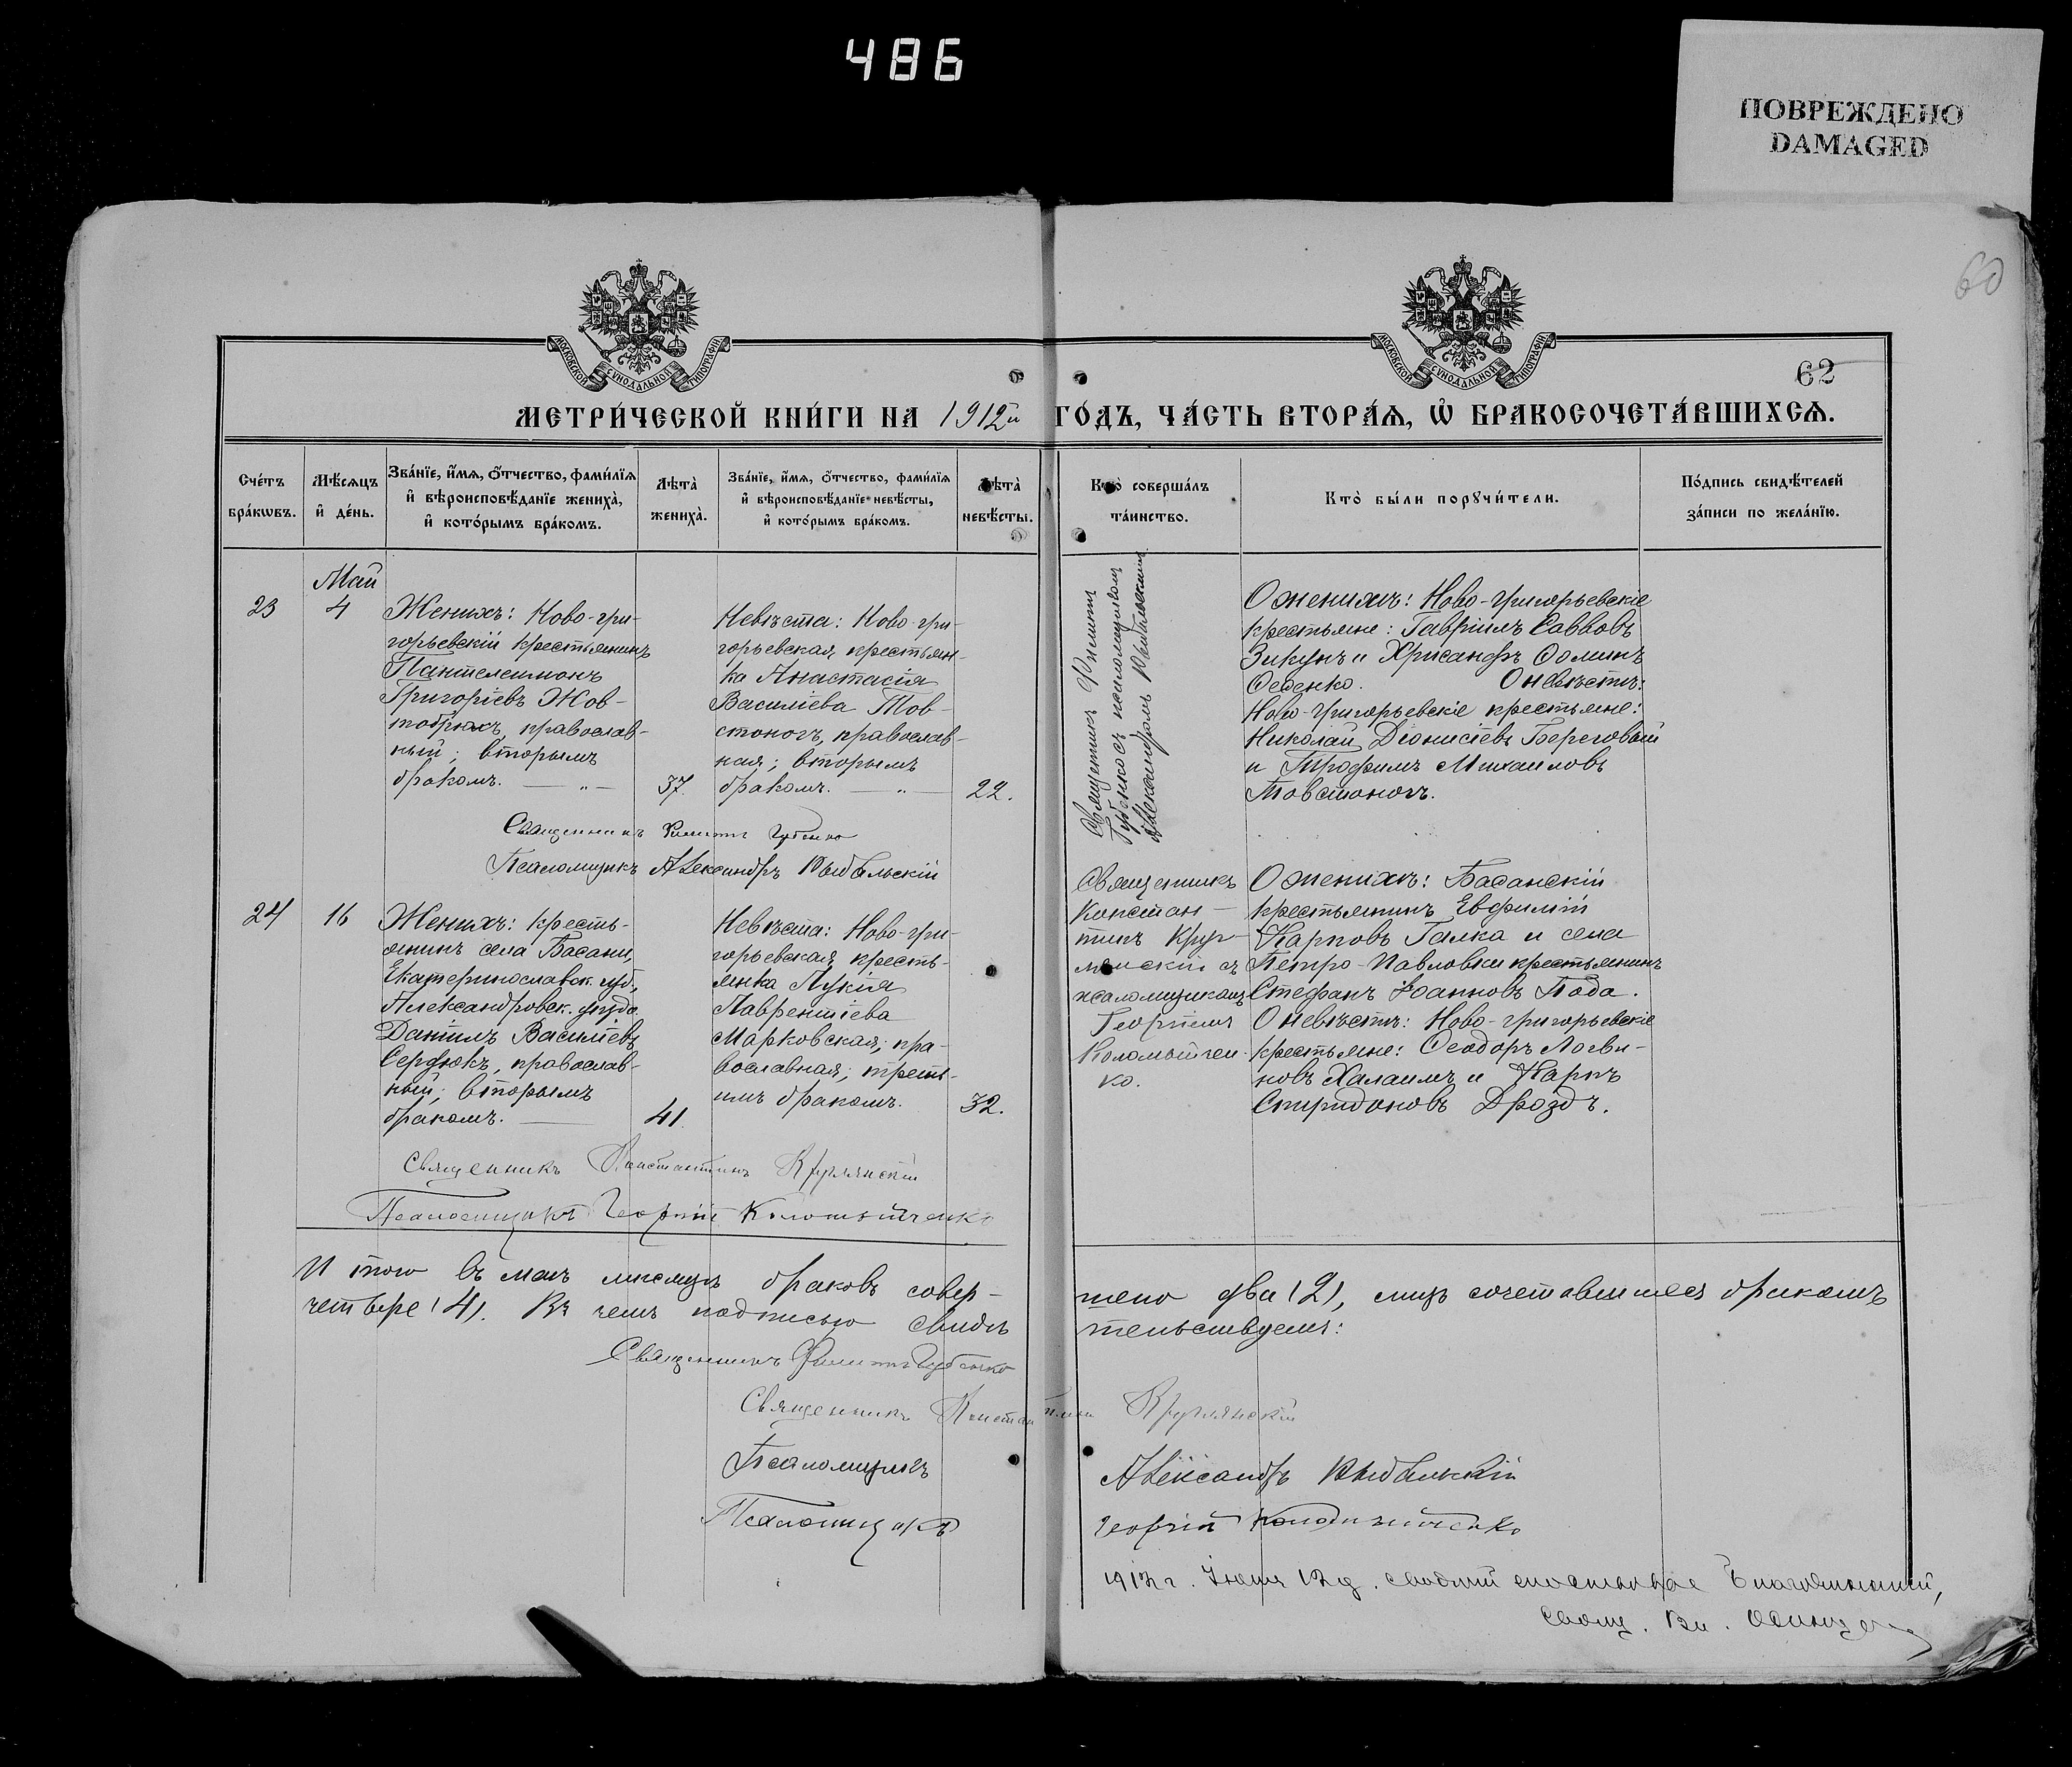 486
ПОВРЕЖДЕНО
DAMAGED
60
МОСКОВСКОЙ СѴНОДАЛЬНОЙ ТИПОГРАФІИ
МОСКОВСКОЙ СѴНОДАЛЬНОЙ ТИПОГРАФІИ
62
МЕТРИ́ЧЕСКОЙ КНИ́ГИ НА 1912й ГО́ДЪ, ЧА́СТЬ ВТОРА́Я, Ѡ҆ БРАКОСОЧЕТА́ВШИХСЯ.
Сче́тъ
бра́кѡвъ.
Мѣ́сяцъ
и҆ де́нь.
Зва́нїе, и҆́мя, о҆́тчество, фами́лїя
и҆ вѣроисповѣ́данїе жениха̀,
и҆ кото́рымъ бра́комъ.
Лѣта̀
жениха̀.
Зва́нїе, и҆́мя, о҆́тчество, фами́лїя
и҆ вѣроисповѣ́данїе невѣ́сты,
и҆ кото́рымъ бра́комъ.
Лѣта̀
невѣ́сты.
Кто̀ соверша́лъ
та́инство.
Кто̀ бы́ли порꙋчи́тели.
По́дпись свидѣ́телей
за́писи по жела́нїю.
Май
23
4
Женихъ: Ново-гри-
горьевскій крестьянинъ
Пантелеимонъ
Григоріевъ Жов-
тобрюхъ, православ-
ный; вторымъ
бракомъ. — „ —
37.
Невѣста: Ново-гри-
горьевская крестьян-
ка Анастасія
Василіева Тов-
стоногъ, православ-
ная; вторымъ
бракомъ. — „ —
22.
Священникъ Филиппъ
Губенко съ псаломщикомъ
Александромъ
О женихѣ: Ново-Григорьевскіе
крестьяне: Гавріилъ Савовъ
Зикунъ и Хрисанфъ Ѳоминъ
Феденко. О невѣстѣ:
Ново-Григорьевскіе крестьяне:
Николай Діонисіевъ Береговый
и Трофимъ Михаиловъ
Товстоногъ.
Священникъ Филиппъ Губенко
Псаломщикъ Александръ
24
16
Женихъ: кресть-
янинъ села Басани,
Екатеринославск. губ.,
Александровск. уѣзда
Даніилъ Василіевъ
Сердюкъ, православ-
ный; вторымъ
бракомъ. —
41.
Невѣста: Ново-гри-
горьевская кресть-
янка Лукія
Лаврентіева
Марковская; пра-
вославная; треть-
имъ бракомъ.
32.
Священникъ
Констан-
тинъ Круг-
лянскій съ
псаломщикомъ
Георгіемъ
Коломыйчен-
ко.
О женихѣ: Басанскій
крестьянинъ Евфимій
Карповъ Галка и села
Петро-Павловки крестьянинъ
Стефанъ Іоанновъ Пада.
О невѣстѣ: Ново-григорьевскіе
крестьяне: Ѳеодоръ Логви-
новъ Халаимъ и Карпъ
Спиридоновъ Дроздъ.
Священникъ Константинъ Круглянскій
Псаломщикъ Георгій Коломыйченко
И того въ маѣ мѣсяцѣ браковъ совер-
шено два (2), лицъ сочетавшихся бракомъ
четвере (4). Въ чемъ подписью свидѣ
тельствуемъ:
Священникъ Филиппъ Губенко
Священникъ Константинъ Круглянскій
Псаломщикъ Александръ
Псаломщикъ Георгій Коломыйченко
1912 г. Іюня 12 д. Благочинный,
Свящ. Вл.